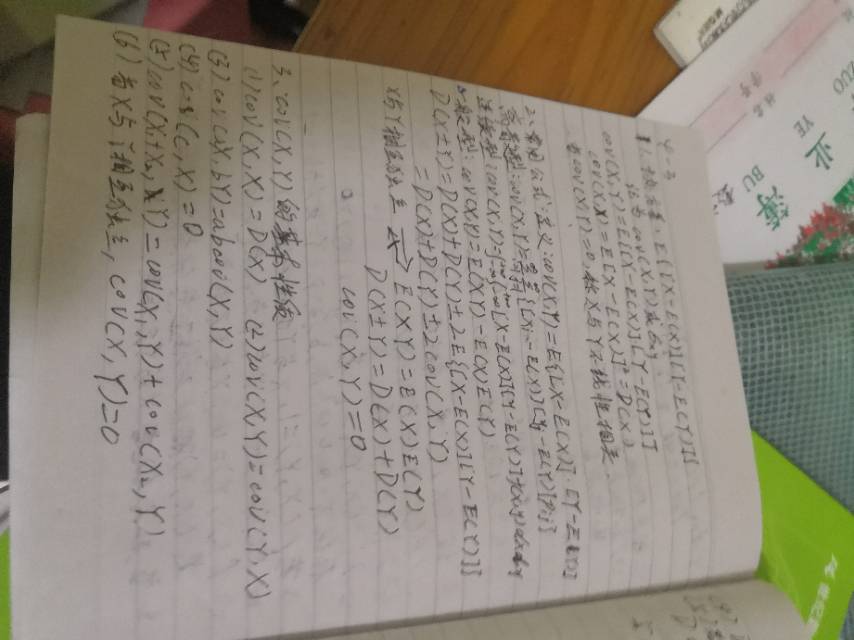 4-3
1. 协方差: E{[X-E(X)][Y-E(Y)]}
记为 cov(X,Y)或σXY
cov(X,Y)=E{[X-E(X)][Y-E(Y)]}
cov(X,X)=E[X-E(X)]²=D(X)
若cov(X,Y)=0,称X与Y不线性相关.
2. 常用公式:定义:cov(X,Y)=E{[X-E(X)].[Y-E(Y)]}
离散型:cov(X,Y)=∑∑{[Xi-E(X)][Yj-E(Y)]Pij}
连续型:cov(X,Y)=∫∫[X-E(X)][Y-E(Y)]f(x,y)dxdy
一般型:cov(X,Y)=E(XY)-E(X)E(Y)
D(X±Y)=D(X)+D(Y)±2E{[X-E(X)][Y-E(Y)]}
=D(X)+D(Y)±2cov(X,Y)
X与Y相互独立 E(XY)=E(X)E(Y)
D(X±Y)=D(X)+D(Y)
cov(X,Y)=0
3. cov(X,Y)的基本性质
(1)cov(X,X)=D(X) (2)cov(X,Y)=cov(Y,X)
(3) cov(aX,bY)=abcov(X,Y)
(4) cov(C,X)=0
(5) cov(X1+X2,Y)=cov(X1,Y)+cov(X2,Y)
(6) 若X与Y相互独立,cov(X,Y)=0
业
YE
簿
BU
姓名
学号